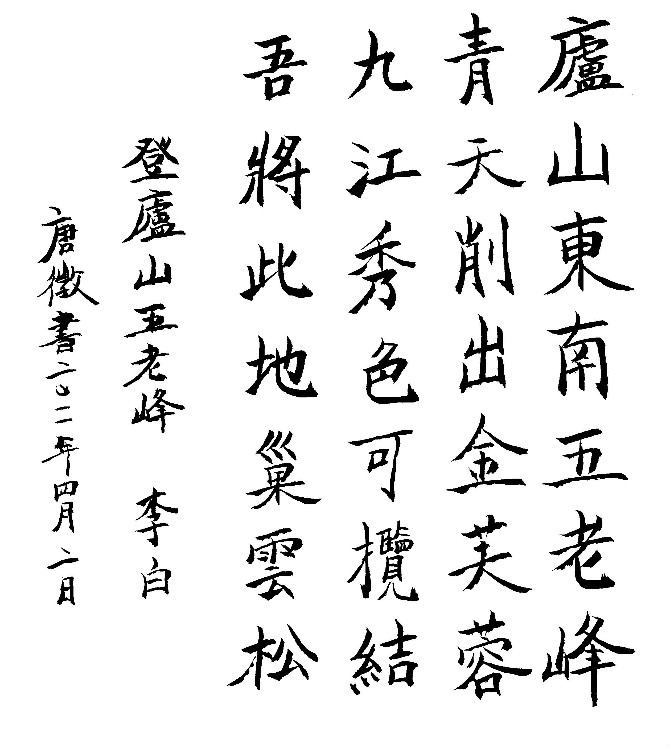 廬山東南五老峰
青天削出金芙蓉
九江秀色可攬結
吾將此地巢雲松
登廬山五老峰 李白
唐徵書二〇二年四月二日